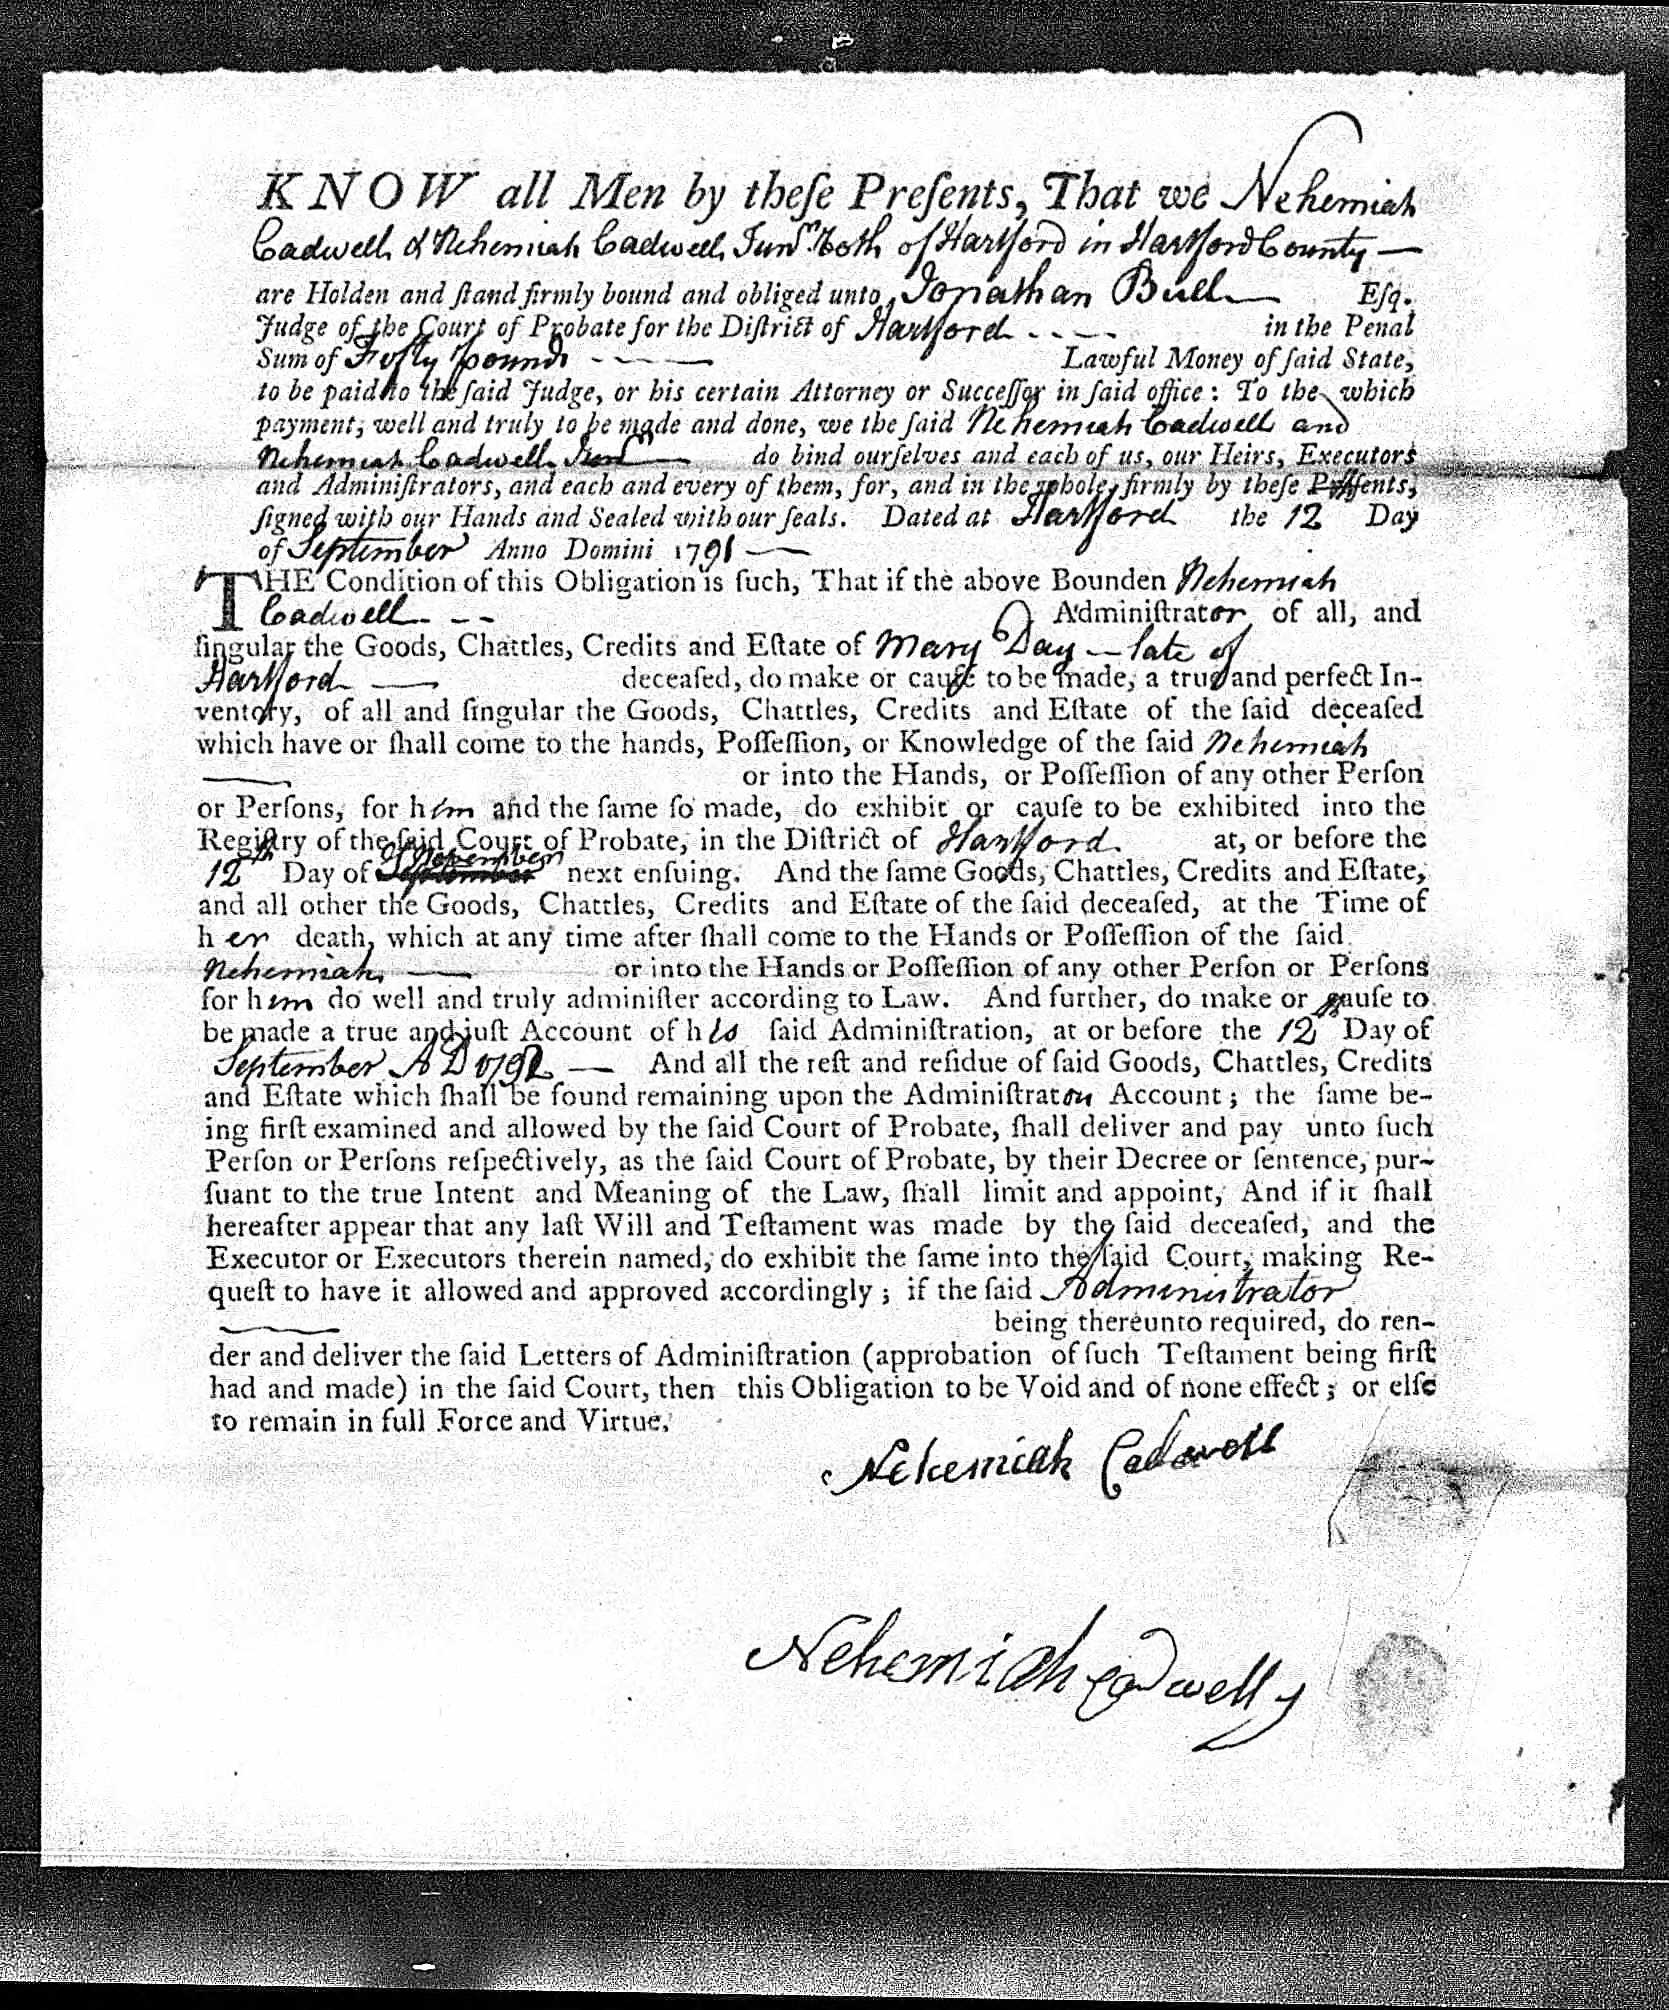 KNOW all Men by theſe Preſents, That we Nehemiah
Cadwell & Nehemiah Cadwell Junr. both of Hartford in Hartford County —
are Holden and ſtand firmly bound and obliged unto Jonathan Bull — Eſq.
Judge of the Court of Probate for the Diſtrict of Hartford - - - - in the Penal
Sum of Fifty pounds - - - — Lawful Money of ſaid State,
to be paid to the ſaid Judge, or his certain Attorney or Succeſſor in ſaid office: To the which
payment, well and truly to be made and done, we the ſaid Nehemiah Cadwell and
Nehemiah Cadwell Junr — do bind ourſelves and each of us, our Heirs, Executors
and Adminiſtrators, and each and every of them, for, and in the whole, firmly by theſe Preſents,
ſigned with our Hands and Sealed with our ſeals. Dated at Hartford the 12th Day
of September Anno Domini 1791 —
THE Condition of this Obligation is ſuch, That if the above Bounden Nehemiah
Cadwell - - - Adminiſtrator of all, and
ſingular the Goods, Chattles, Credits and Eſtate of Mary Day — late of
Hartford — deceaſed, do make or cauſe to be made, a true and perfect In-
ventory, of all and ſingular the Goods, Chattles, Credits and Eſtate of the ſaid deceaſed
which have or ſhall come to the hands, Poſſeſſion, or Knowledge of the ſaid Nehemiah
— or into the Hands, or Poſſeſſion of any other Perſon
or Perſons, for him and the ſame ſo made, do exhibit or cauſe to be exhibited into the
Regiſtry of the ſaid Court of Probate, in the Diſtrict of Hartford at, or before the
12th Day of November next enſuing. And the ſame Goods, Chattles, Credits and Eſtate,
and all other the Goods, Chattles, Credits and Eſtate of the ſaid deceaſed, at the Time of
her death, which at any time after ſhall come to the Hands or Poſſeſſion of the ſaid
Nehemiah — or into the Hands or Poſſeſſion of any other Perſon or Perſons
for him do well and truly adminiſter according to Law. And further, do make or cauſe to
be made a true and juſt Account of his ſaid Adminiſtration, at or before the 12th Day of
September AD 1792 — And all the reſt and reſidue of ſaid Goods, Chattles, Credits
and Eſtate which ſhall be found remaining upon the Adminiſtrators Account; the ſame be-
ing firſt examined and allowed by the ſaid Court of Probate, ſhall deliver and pay unto ſuch
Perſon or Perſons reſpectively, as the ſaid Court of Probate, by their Decree or ſentence, pur-
ſuant to the true Intent and Meaning of the Law, ſhall limit and appoint, And if it ſhall
hereafter appear that any laſt Will and Teſtament was made by the ſaid deceaſed, and the
Executor or Executors therein named, do exhibit the ſame into the ſaid Court, making Re-
queſt to have it allowed and approved accordingly; if the ſaid Administrator
— being thereunto required, do ren-
der and deliver the ſaid Letters of Adminiſtration (approbation of ſuch Teſtament being firſt
had and made) in the ſaid Court, then this Obligation to be Void and of none effect; or elſe
to remain in full Force and Virtue.
Nehemiah Cadwell
Nehemiah Cadwell